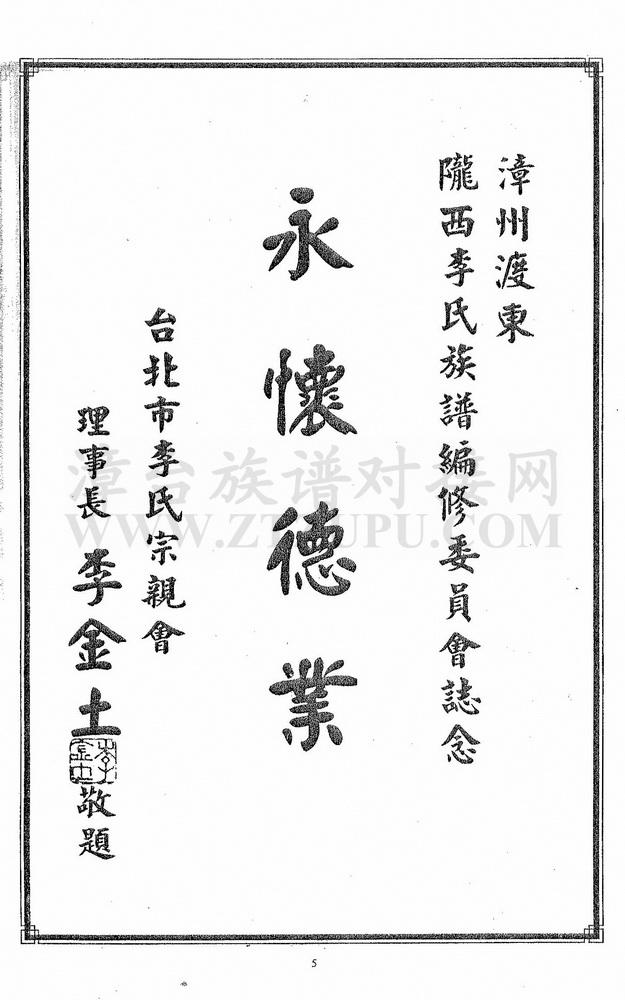 漳州渡東
隴西李氏族譜編修委員會誌念
永懷德業
台北市李氏宗親會
理事長 李金土 敬題
李金土
漳台族谱对接网
WWW.ZTZUPU.COM
5